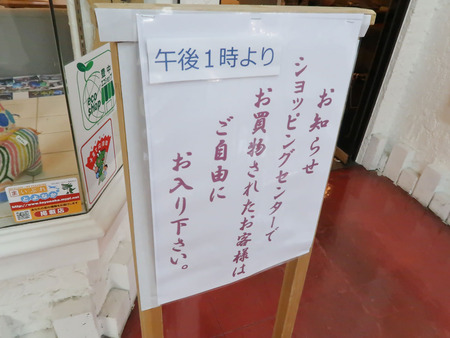 午後1時より
お知らせ
ショッピングセンターで
お買物されたお客様は
ご自由に
お入り下さい。
eco
shop
掲載店